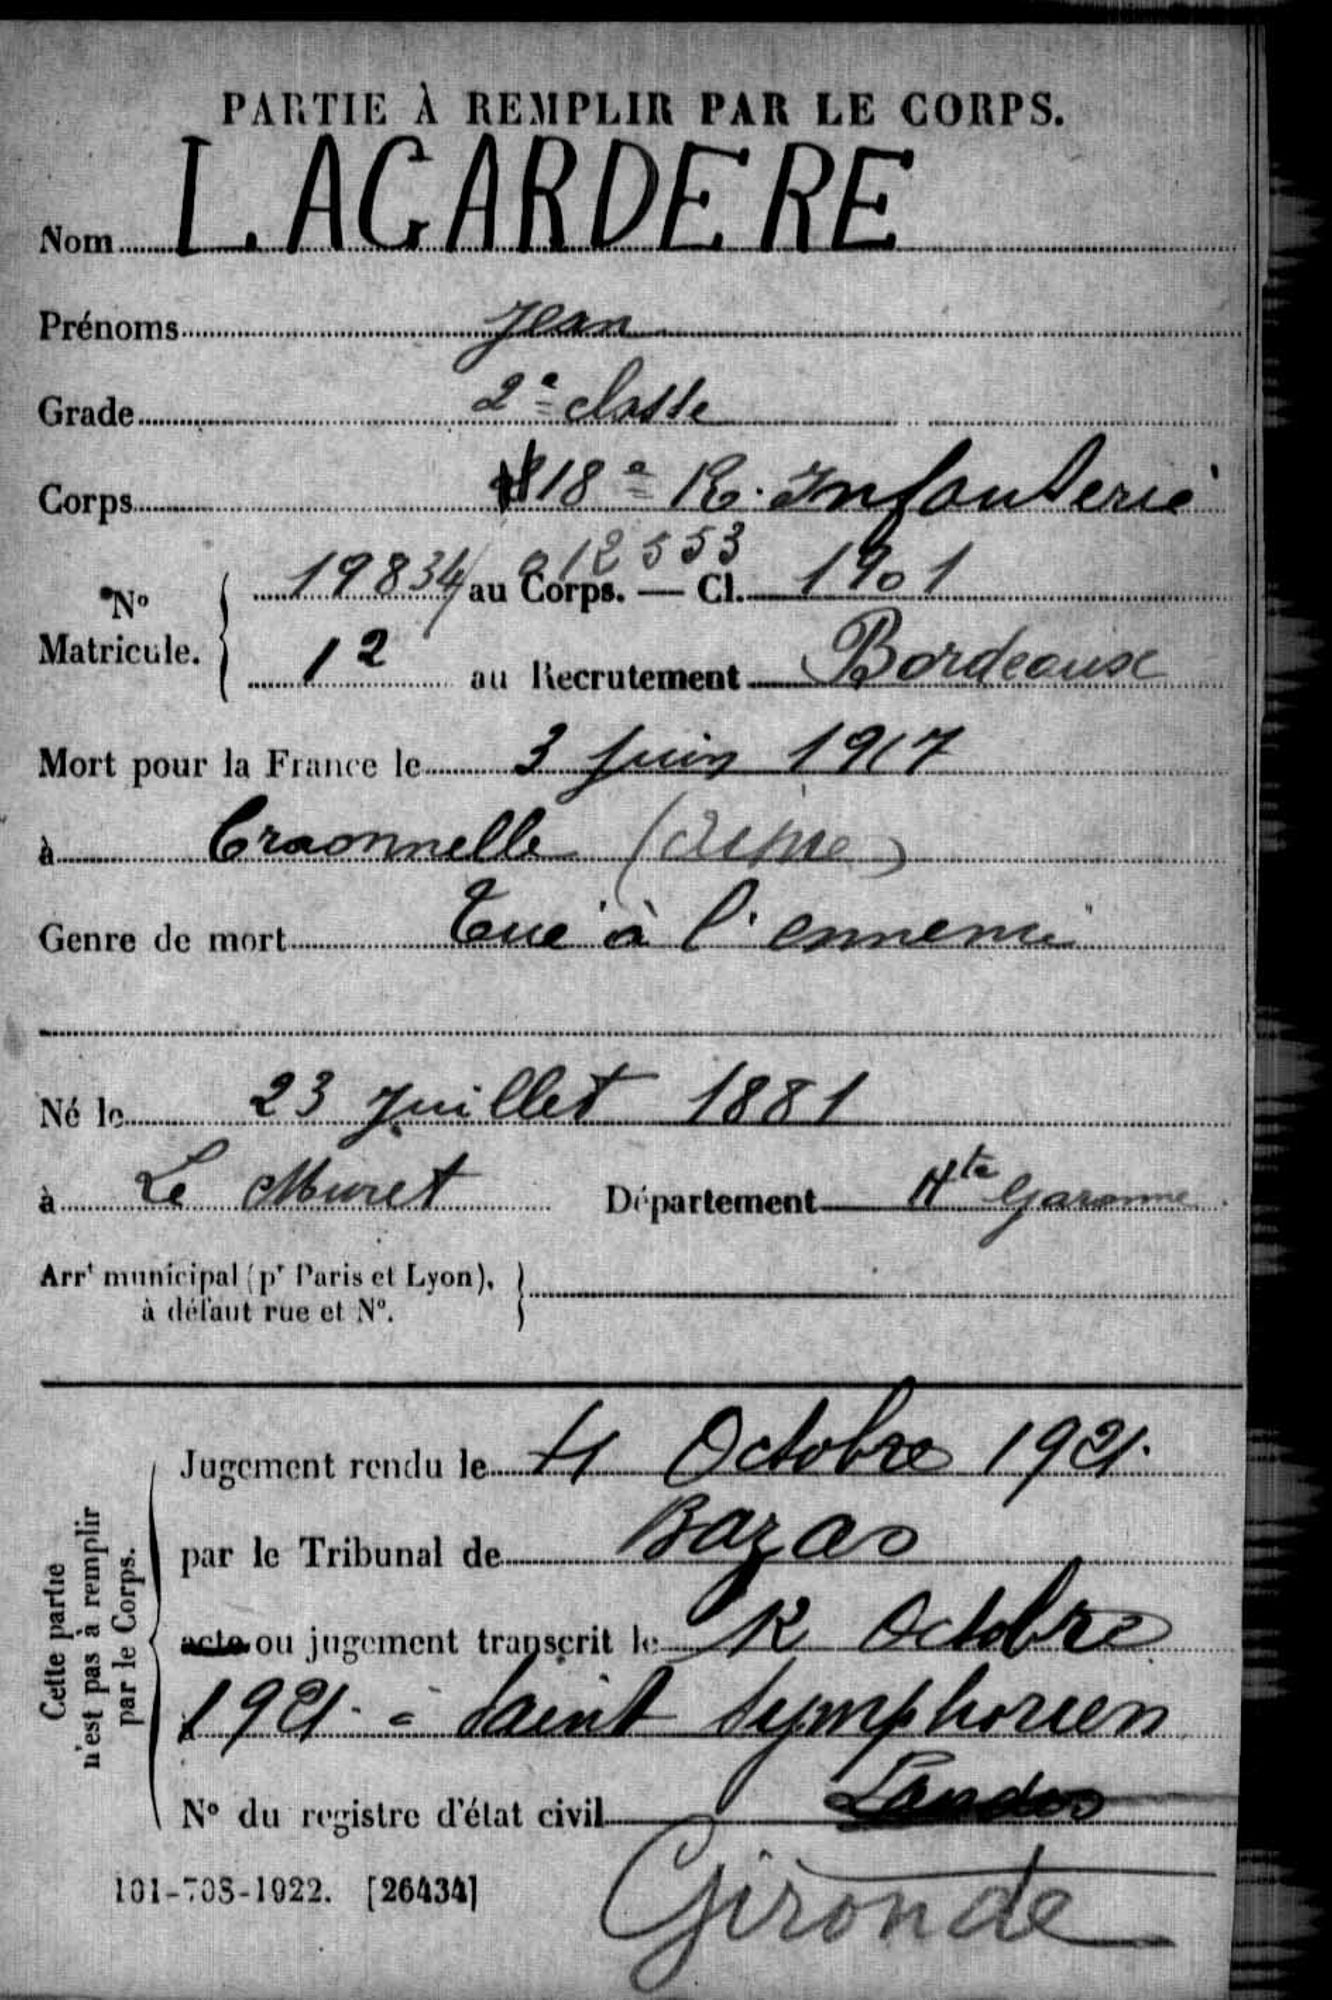 PARTIE À REMPLIR PAR LE CORPS.
Nom LAGARDERE
Prénoms Jean
Grade 2e classe
Corps 18e R. Infanterie
012553
N° Matricule. 19834 au Corps. — Cl. 1901
12 au Recrutement Bordeaux
Mort pour la France le 3 Juin 1917
à Craonnelle (Aisne)
Genre de mort Tué à l'ennemi
Né le 23 Juillet 1881
à Le Muret Département Hte Garonne
Arrt municipal (pr Paris et Lyon),
à défaut rue et N°.
Cette partie
n'est pas à remplir
par le Corps.
Jugement rendu le 4 Octobre 1921.
par le Tribunal de Bazas
acte ou jugement transcrit le 12 Octobre
1921 - Saint Symphorien
Landes
N° du registre d'état civil
Gironde
101-708-1922. [26434]